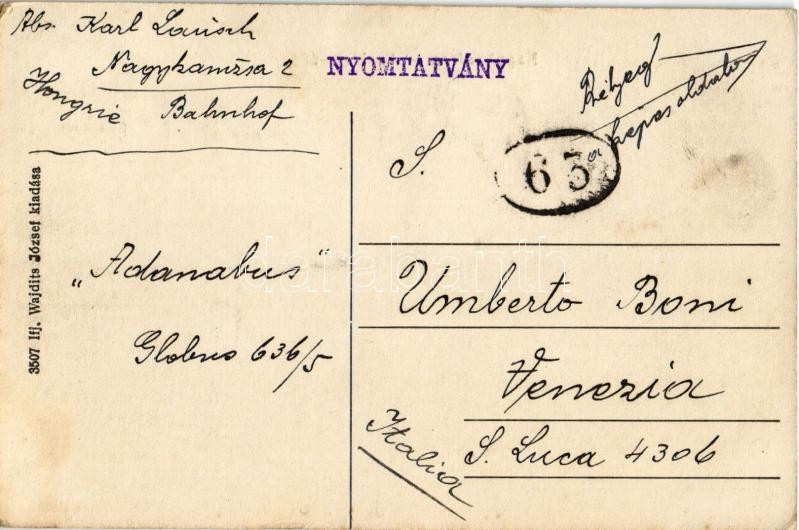 Abs. Karl Lausch
Nagykanizsa 2
Hongrie
Bahnhof
NYOMTATVÁNY
Bélyeg
a képes oldalon
63
S.
3507 Ifj. Wajdits József kiadása
„Adanabus"
Globus 636/5
Umberto Boni
Venezia
S. Luca 4306
Italia
darabanth